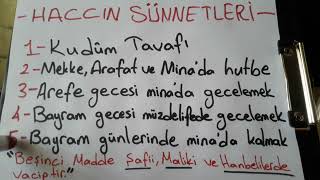 - HACCIN SÜNNETLERİ -
1- Kudüm Tavafı
2- Mekke, Arafat ve Mina'da hutbe
3- Arefe gecesi mina'da gecelemek
4- Bayram gecesi müzdelifede gecelemek
5- Bayram günlerinde mina'da kalmak
"Beşinci Madde Şafii, Maliki ve Hanbelilerde
vaciptir."